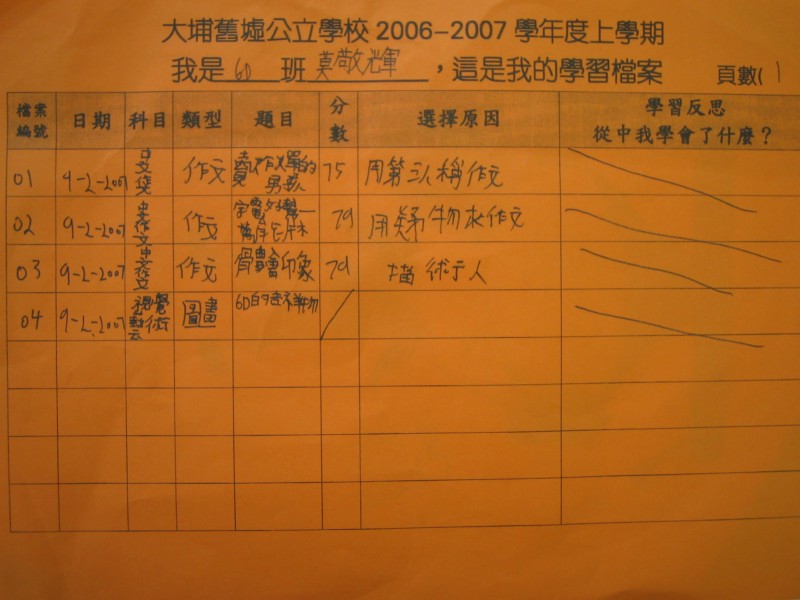 大埔舊墟公立學校 2006-2007 學年度上學期
我是 6D 班 莫敬輝 ，這是我的學習檔案 頁數( 1
檔案編號 日期 科目 類型 題目 分數 選擇原因 學習反思 從中我學會了什麼？
01 9-2-2007 作文 的男孩 75 用第三人稱作文
02 9-2-2007 中文作文 作文 79 用擬物來作文
03 9-2-2007 中文作文 作文 印象 79 描術行人
04 9-2-2007 視覺藝術 圖畫 6D